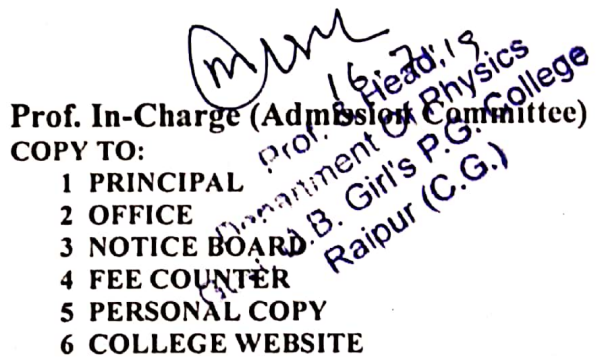 16.7.19
Prof. & Head,
Department Of Physics
D.B. Girl's P.G. College
Raipur (C.G.)
Prof. In-Charge (Admission Committee)
COPY TO:
1 PRINCIPAL
2 OFFICE
3 NOTICE BOARD
4 FEE COUNTER
5 PERSONAL COPY
6 COLLEGE WEBSITE